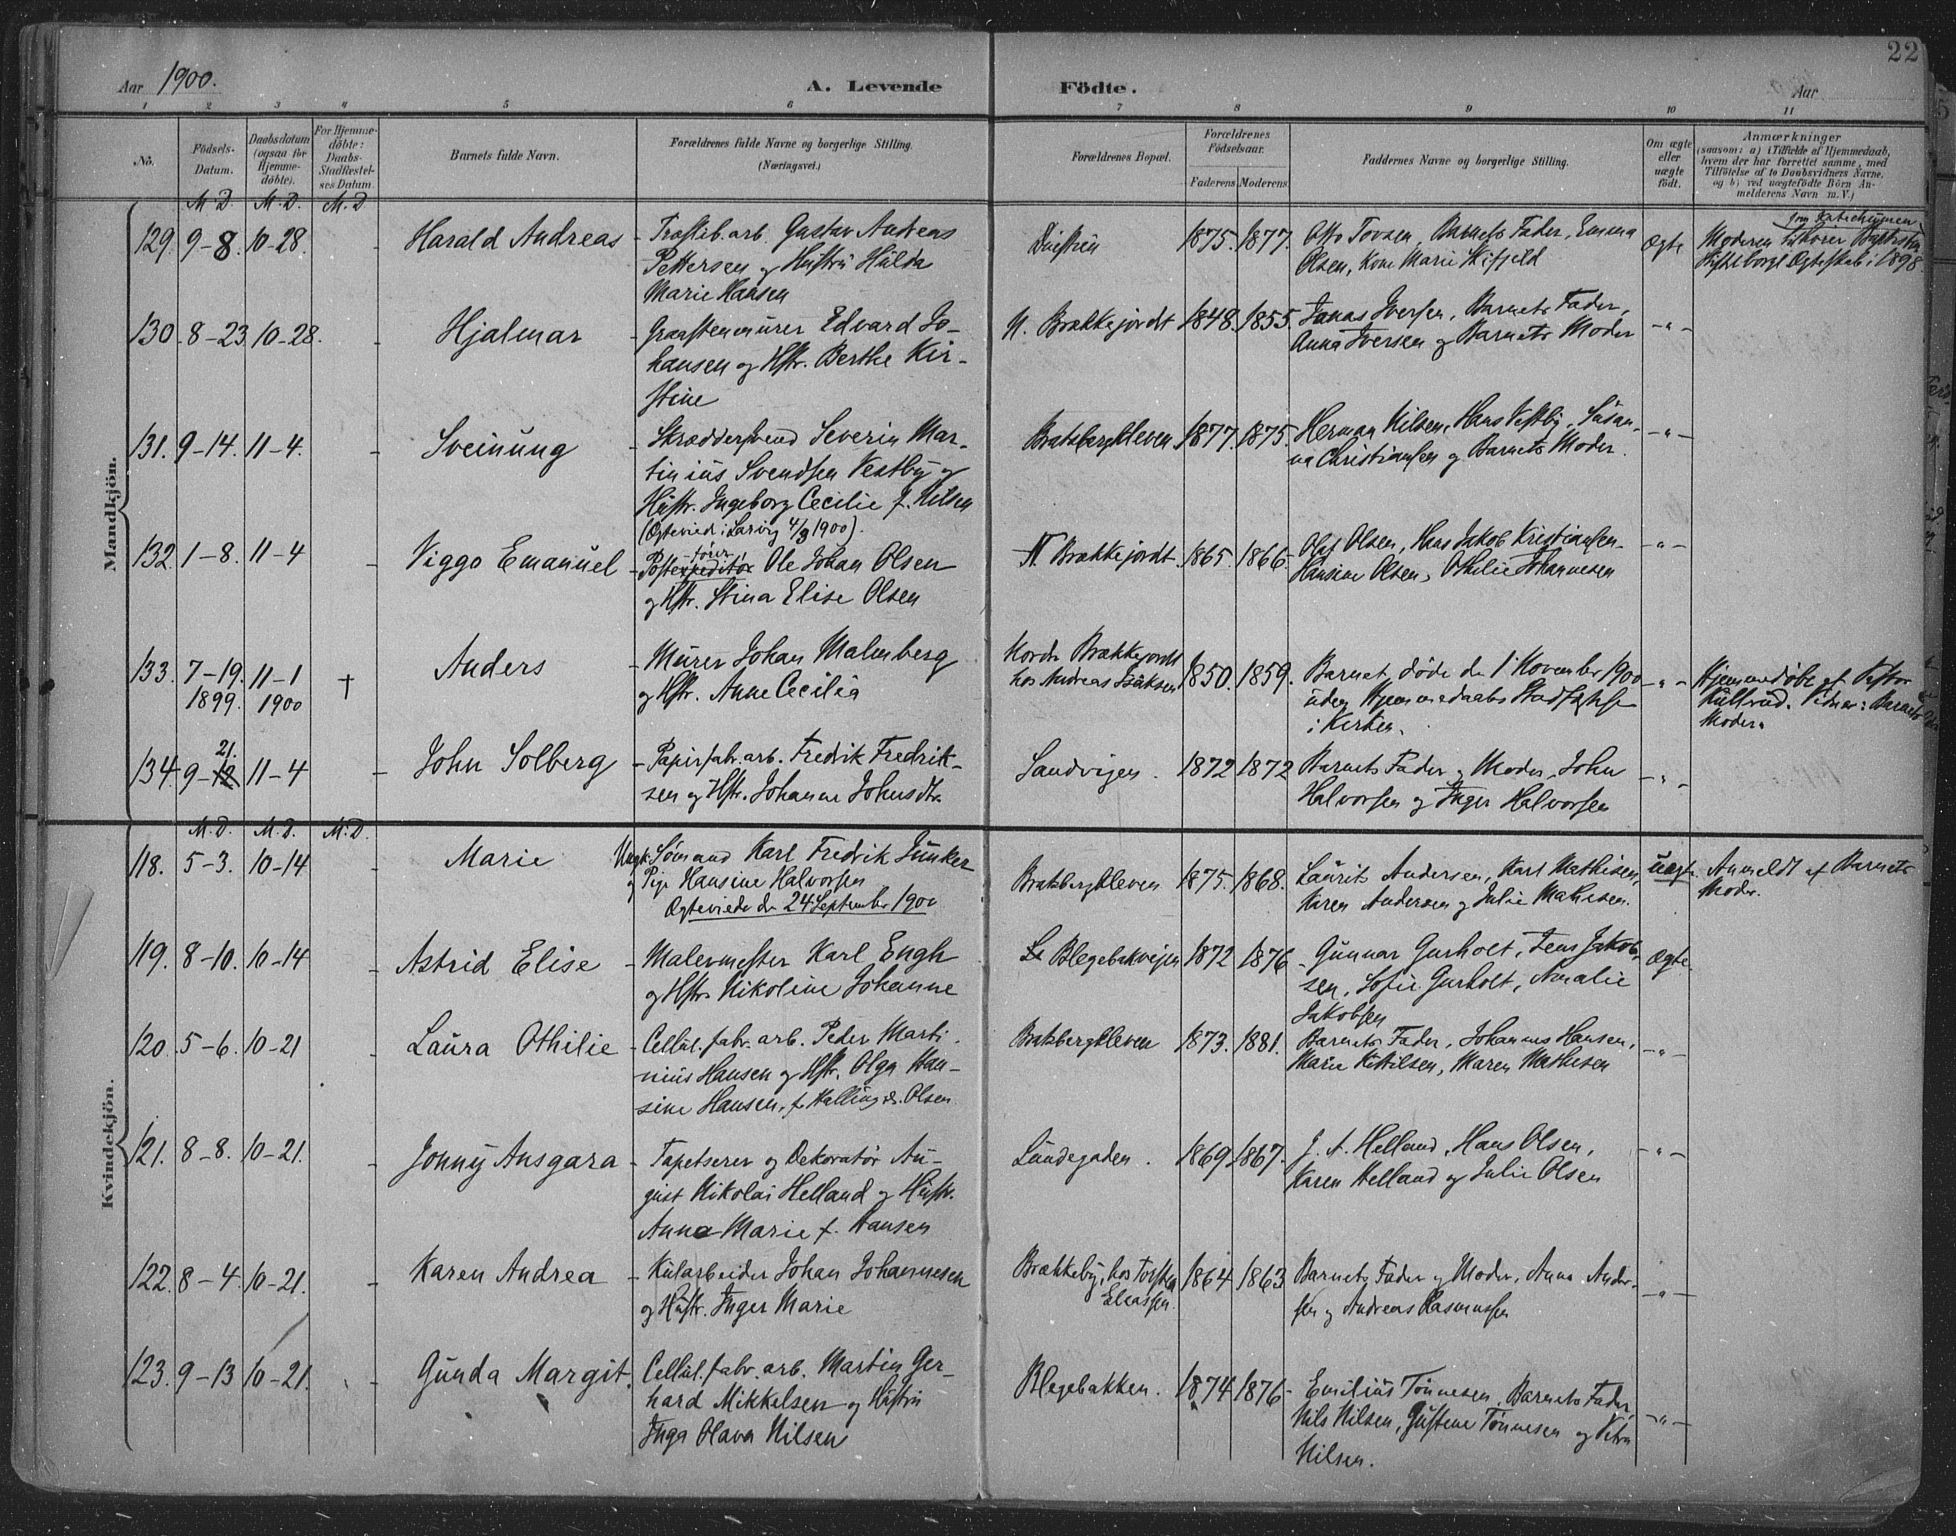 22
Aar 1900.
A. Levende Födte.
Aar
1 2 3 4 5 6 7 8 9 10 11
No.
Födsels-Datum.
Daabsdatum (ogsaa for Hjemme-döbte).
For Hjemme-döbte: Daabs-Stadfæstel-ses Datum.
Barnets fulde Navn.
Forældrenes fulde Navne og borgerlige Stilling. (Næringsvei.)
Forældrenes Bopæl.
Forældrenes Födselsaar.
Faderens. Moderens.
Faddernes Navne og borgerlige Stilling.
Om ægte eller uægte födt.
Anmærkninger
(saasom: a) i Tilfælde af Hjemmedaab,
hvem der har forrettet samme, med
Tilföielse af to Daabsvidners Navne,
og b) ved uægtefödte Börn An-
melderens Navn m. V.)
Mandkjön.
M. D. M. D. M. D
129. 9-8. 10-28. - Harald Andreas - arb. Gustav Andreas
Pettersen og Hustru Hilda
Marie Hansen
1875. 1877. Otto Barnets Fader, Emma
Olsen, Marie
Ægte
Moderen
Ægteskab i 1898.
130. 8-23. 10-28. - Hjalmar - Graastensmurer Edvard Jo-
hansen og Hstr. Berthe Kir-
stine
N. Brækkejordt 1848. 1855. Jonas Iversen, Barnets Fader,
Anna Iversen og Barnets Moder
-"-
131. 9-14. 11-4. - Sveinung - Skræddersvend Severin Mar-
tinius Svendsen Vestby og
Hustr. Ingeborg Cecilie f. Nilsen
(Ægteviede i Larvig 4/8 1900).
Bratsbergkleven 1877. 1875. Herman Nilsen, Hans Vestby, Susan-
na Christiansen og Barnets Moder.
-"-
132. 1-8. 11-4 - Viggo Emanuel - Postexpeditør Ole Johan Olsen
og Hstr. Stina Elise Olsen
N. Brækkejordt. 1865. 1866. Olaf Olsen, Hans Jakob Kristiansen
Hansine Olsen, Othilie Johannesen
-"-
133. 7-19. 1899. 11-1 1900 † Anders - Murer Johan Malmberg
og Hstr. Anne Cecilia
Nordre Brækkejordt
hos Andreas Isaksen
1850. 1859. Barnet døde den 1 November 1900
uden Hjemmedaabs Stadfæstelse
i Kirken.
-"-
Hjemmedøbt af
Vidner: Barnets
Moder
134. 9-21. 11-4 - John Solberg - Papirfabr. arb. Fredrik Fredrik-
sen og Hstr. Johanne Johnsdtr.
Sandvigen. 1872 1872 Barnets Fader og Moder, John
Halvorsen og Inger Halvorsen
-"-
Kvindekjön.
M. D. M. D. M. D.
118. 5-3. 10-14 - Marie Ungk. Sømand Karl Fredrik Junker
og Pige Hansine Halvorsen
Ægteviede den 24 September 1900
Bratsbergkleven 1875. 1868. Laurits Andersen, Karl Mathisen,
Karen Andersen og Julie Mathisen.
uægte Anmeldt af Barnets
Moder.
119. 8-10. 10-14 - Astrid Elise - Malermester Karl Engh
og Hstr. Nikoline Johanne
Blegebakveien 1872 1876 - Gunnar Gurholt, Jens Jakob-
sen, Sofie Gurholt, Amalie
Jakobsen
Ægte
120. 5-6. 10-21 - Laura Othilie - Cellul. fabr. arb. Peder Marti-
nius Hansen og Hstr. Olga Han-
sine Hansen, f. Olsen
Bratsbergkleven 1873. 1881. Barnets Fader, Johannes Hansen,
Marie Kittilsen, Maren Mathisen
-"-
121. 8-8. 10-21. - Jonny Ansgara - Tapetserer og Dekoratør Au-
gust Nikolai Helland og Hustr.
Anna Marie f. Hansen
Lundegaden. 1869. 1867. J. A. Helland, Hans Olsen,
Karen Helland og Julie Olsen
-"-
122. 8-4. 10-21. - Karen Andrea - Kularbeider Johan Johannesen
og Hustr. Inger Marie
Brækkeby, hos Torsten
Eliassen.
1864 1863 Barnets Fader og Moder, Anna Ander-
sen og Andreas Rasmussen
-"-
123. 9-13 10-21. - Gunda Margit. Cellul. fabr. arb. Martin Ger-
hard Mikkelsen og Hustru
Inga Olava Nilsen
Blegebakken. 1874 1876 - Emilius Tønnesen, Barnets Fader,
Nils Nilsen, Gustene Tønnesen og Petra
Nilsen.
-"-